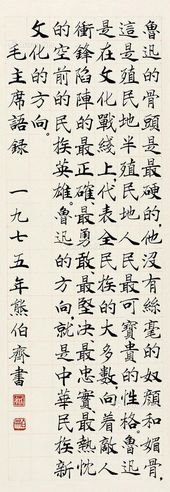 魯迅的骨頭是最硬的，他沒有絲毫的奴顏和媚骨，
這是殖民地半殖民地人民最可寶貴的性格。魯迅
是在文化戰綫上代表全民族的大多數，向着敵人
衝鋒陷陣的最正確、最勇敢、最堅決、最忠實、最熱忱
的空前的民族英雄。魯迅的方向，就是中華民族新
文化的方向。
毛主席語録 一九七五年熊伯齊書